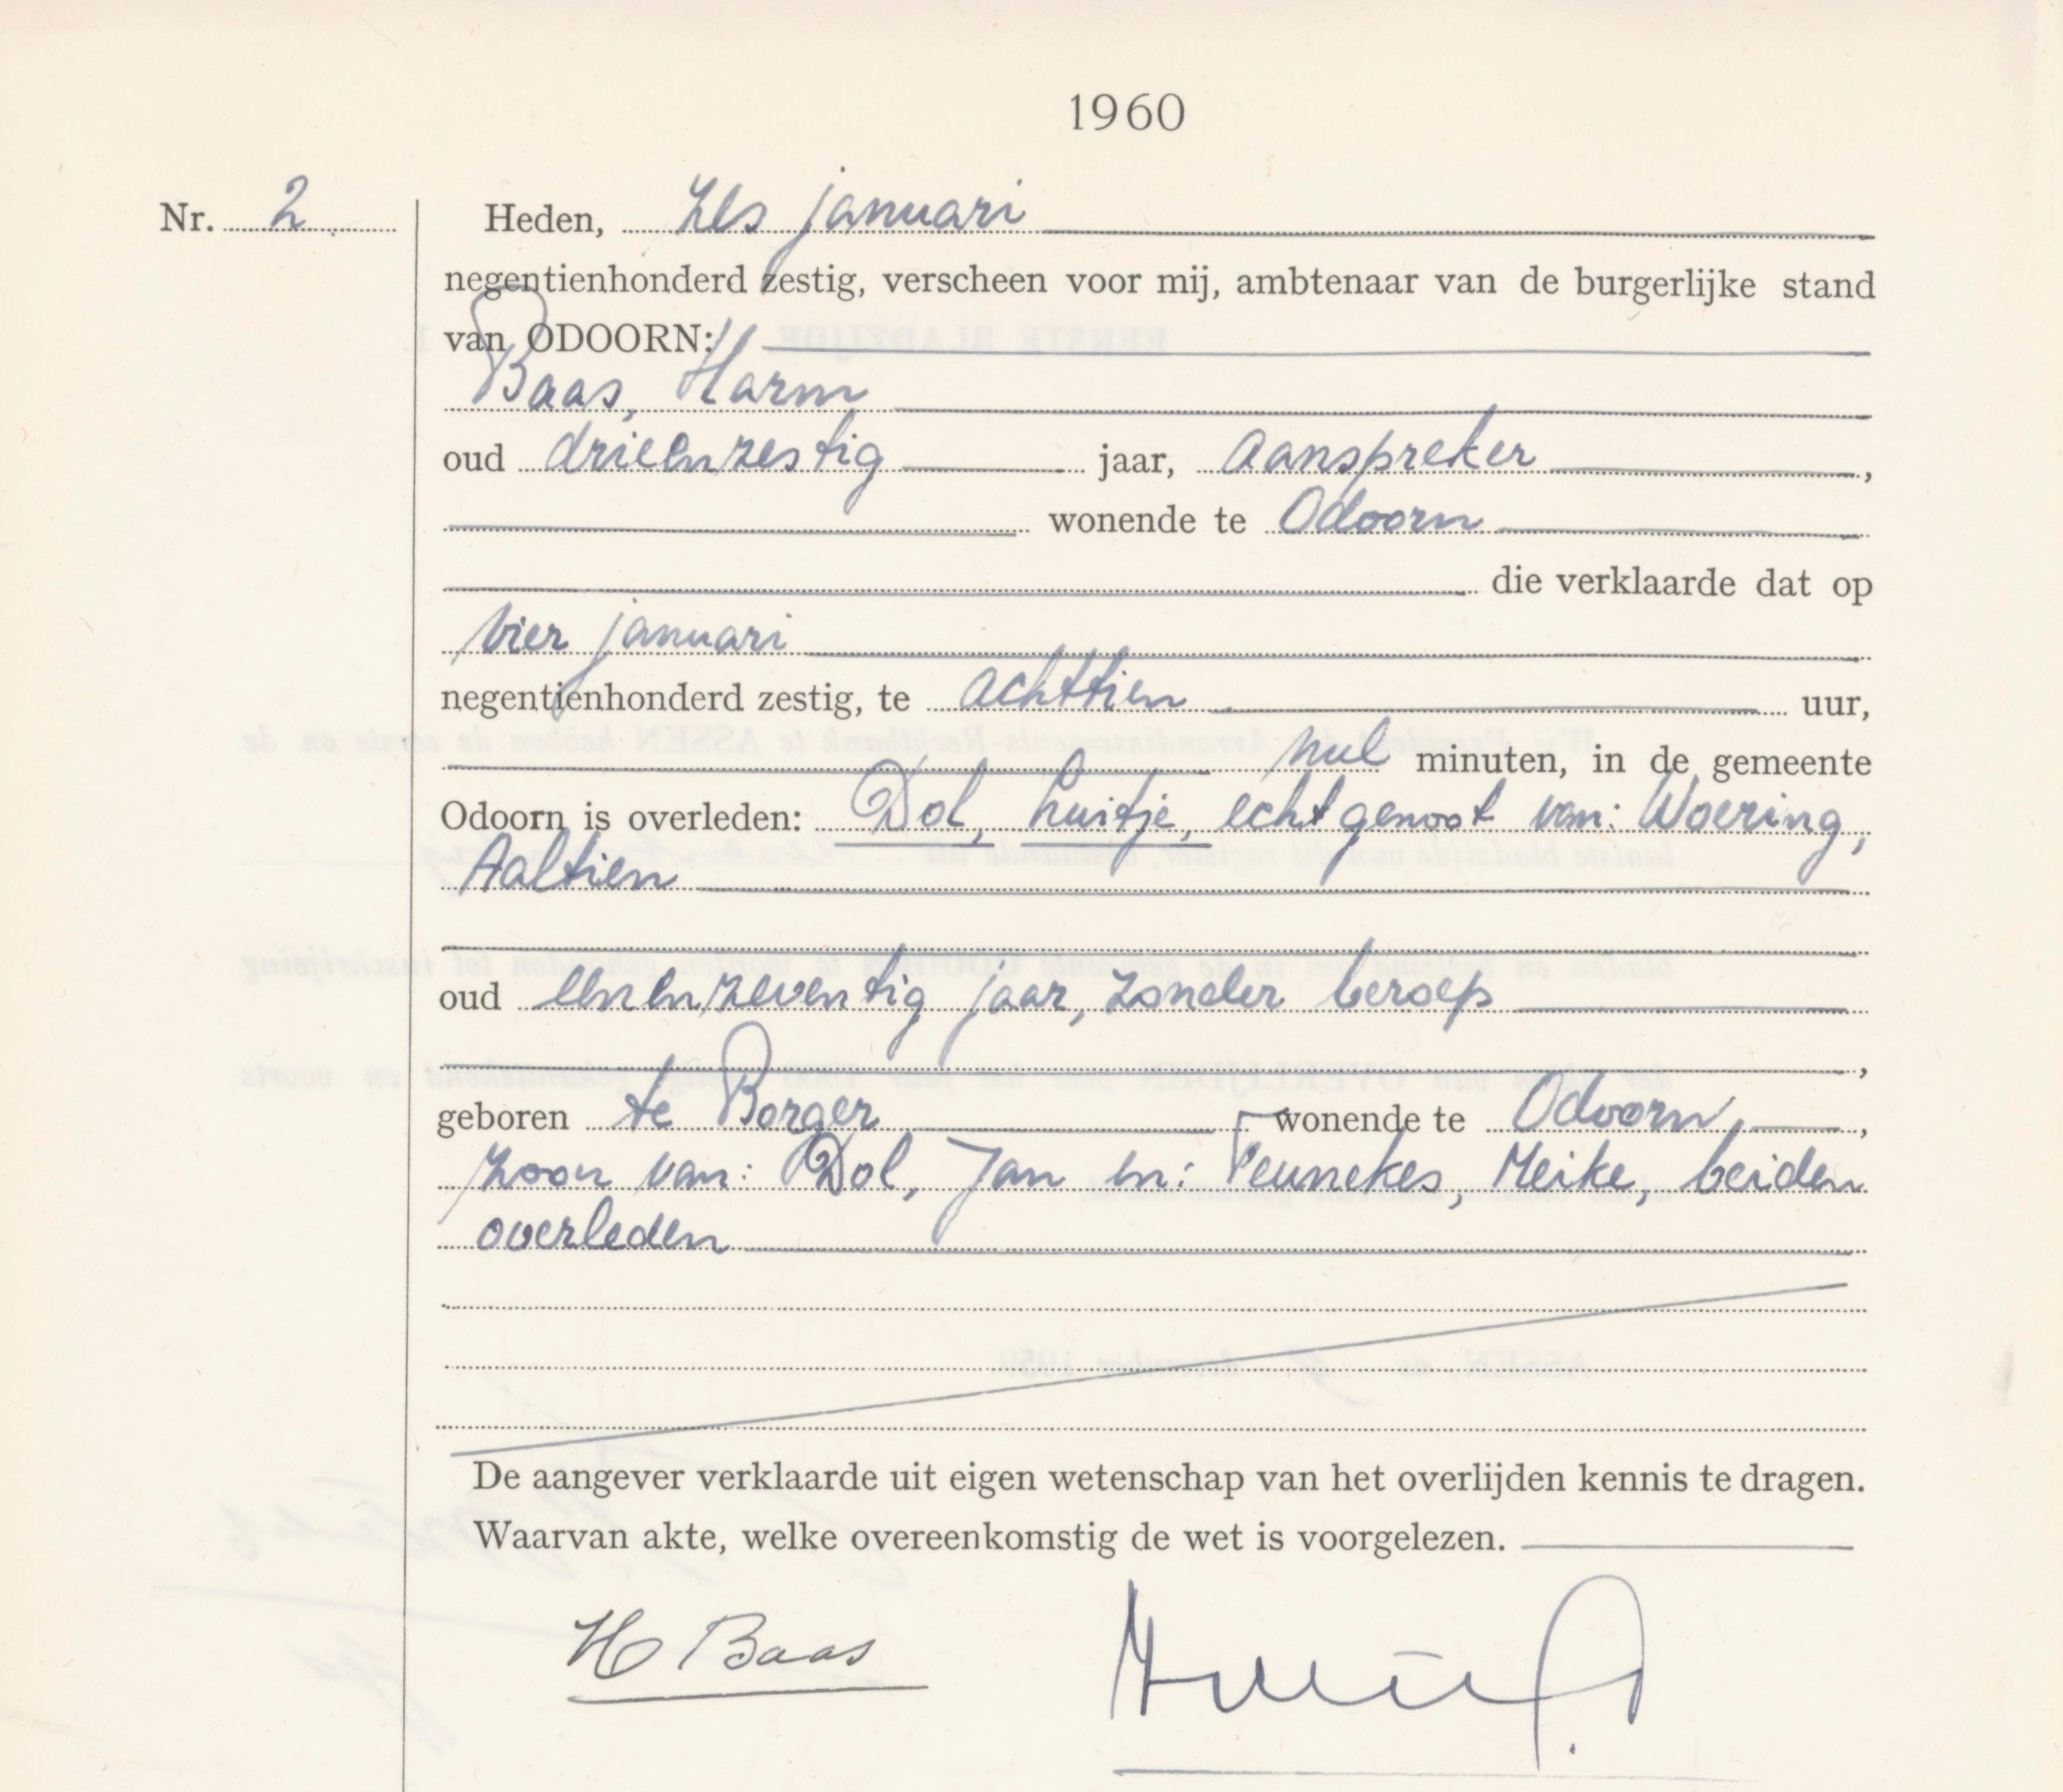 1960
Nr. 2
Heden, zes januari
negentienhonderd zestig, verscheen voor mij, ambtenaar van de burgerlijke stand
van ODOORN:
Baas, Harm
oud drieënzestig jaar, aanspreker,
wonende te Odoorn
die verklaarde dat op
vier januari
negentienhonderd zestig, te achttien uur,
nul minuten, in de gemeente
Odoorn is overleden: Dol, Luitje, echtgenoot van: Woering,
Aaltien
oud eenenzeventig jaar, zonder beroep
,
geboren te Borger wonende te Odoorn,
zoon van: Dol, Jan en: Teunekes, Meike, beiden
overleden
De aangever verklaarde uit eigen wetenschap van het overlijden kennis te dragen.
Waarvan akte, welke overeenkomstig de wet is voorgelezen.
H Baas